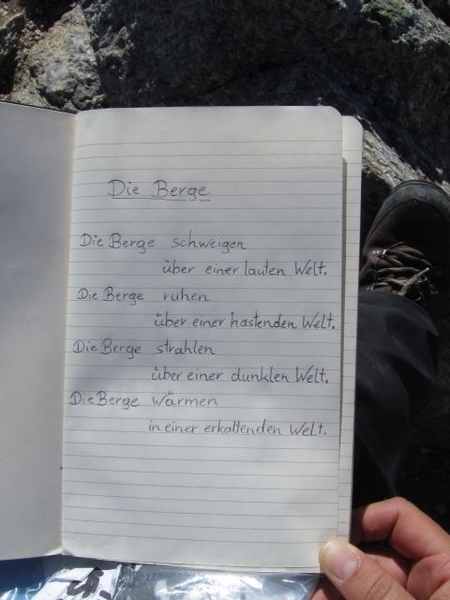 Die Berge
Die Berge schweigen
über einer lauten Welt.
Die Berge ruhen
über einer hastenden Welt.
Die Berge strahlen
über einer dunklen Welt.
Die Berge wärmen
in einer erkaltenden Welt.